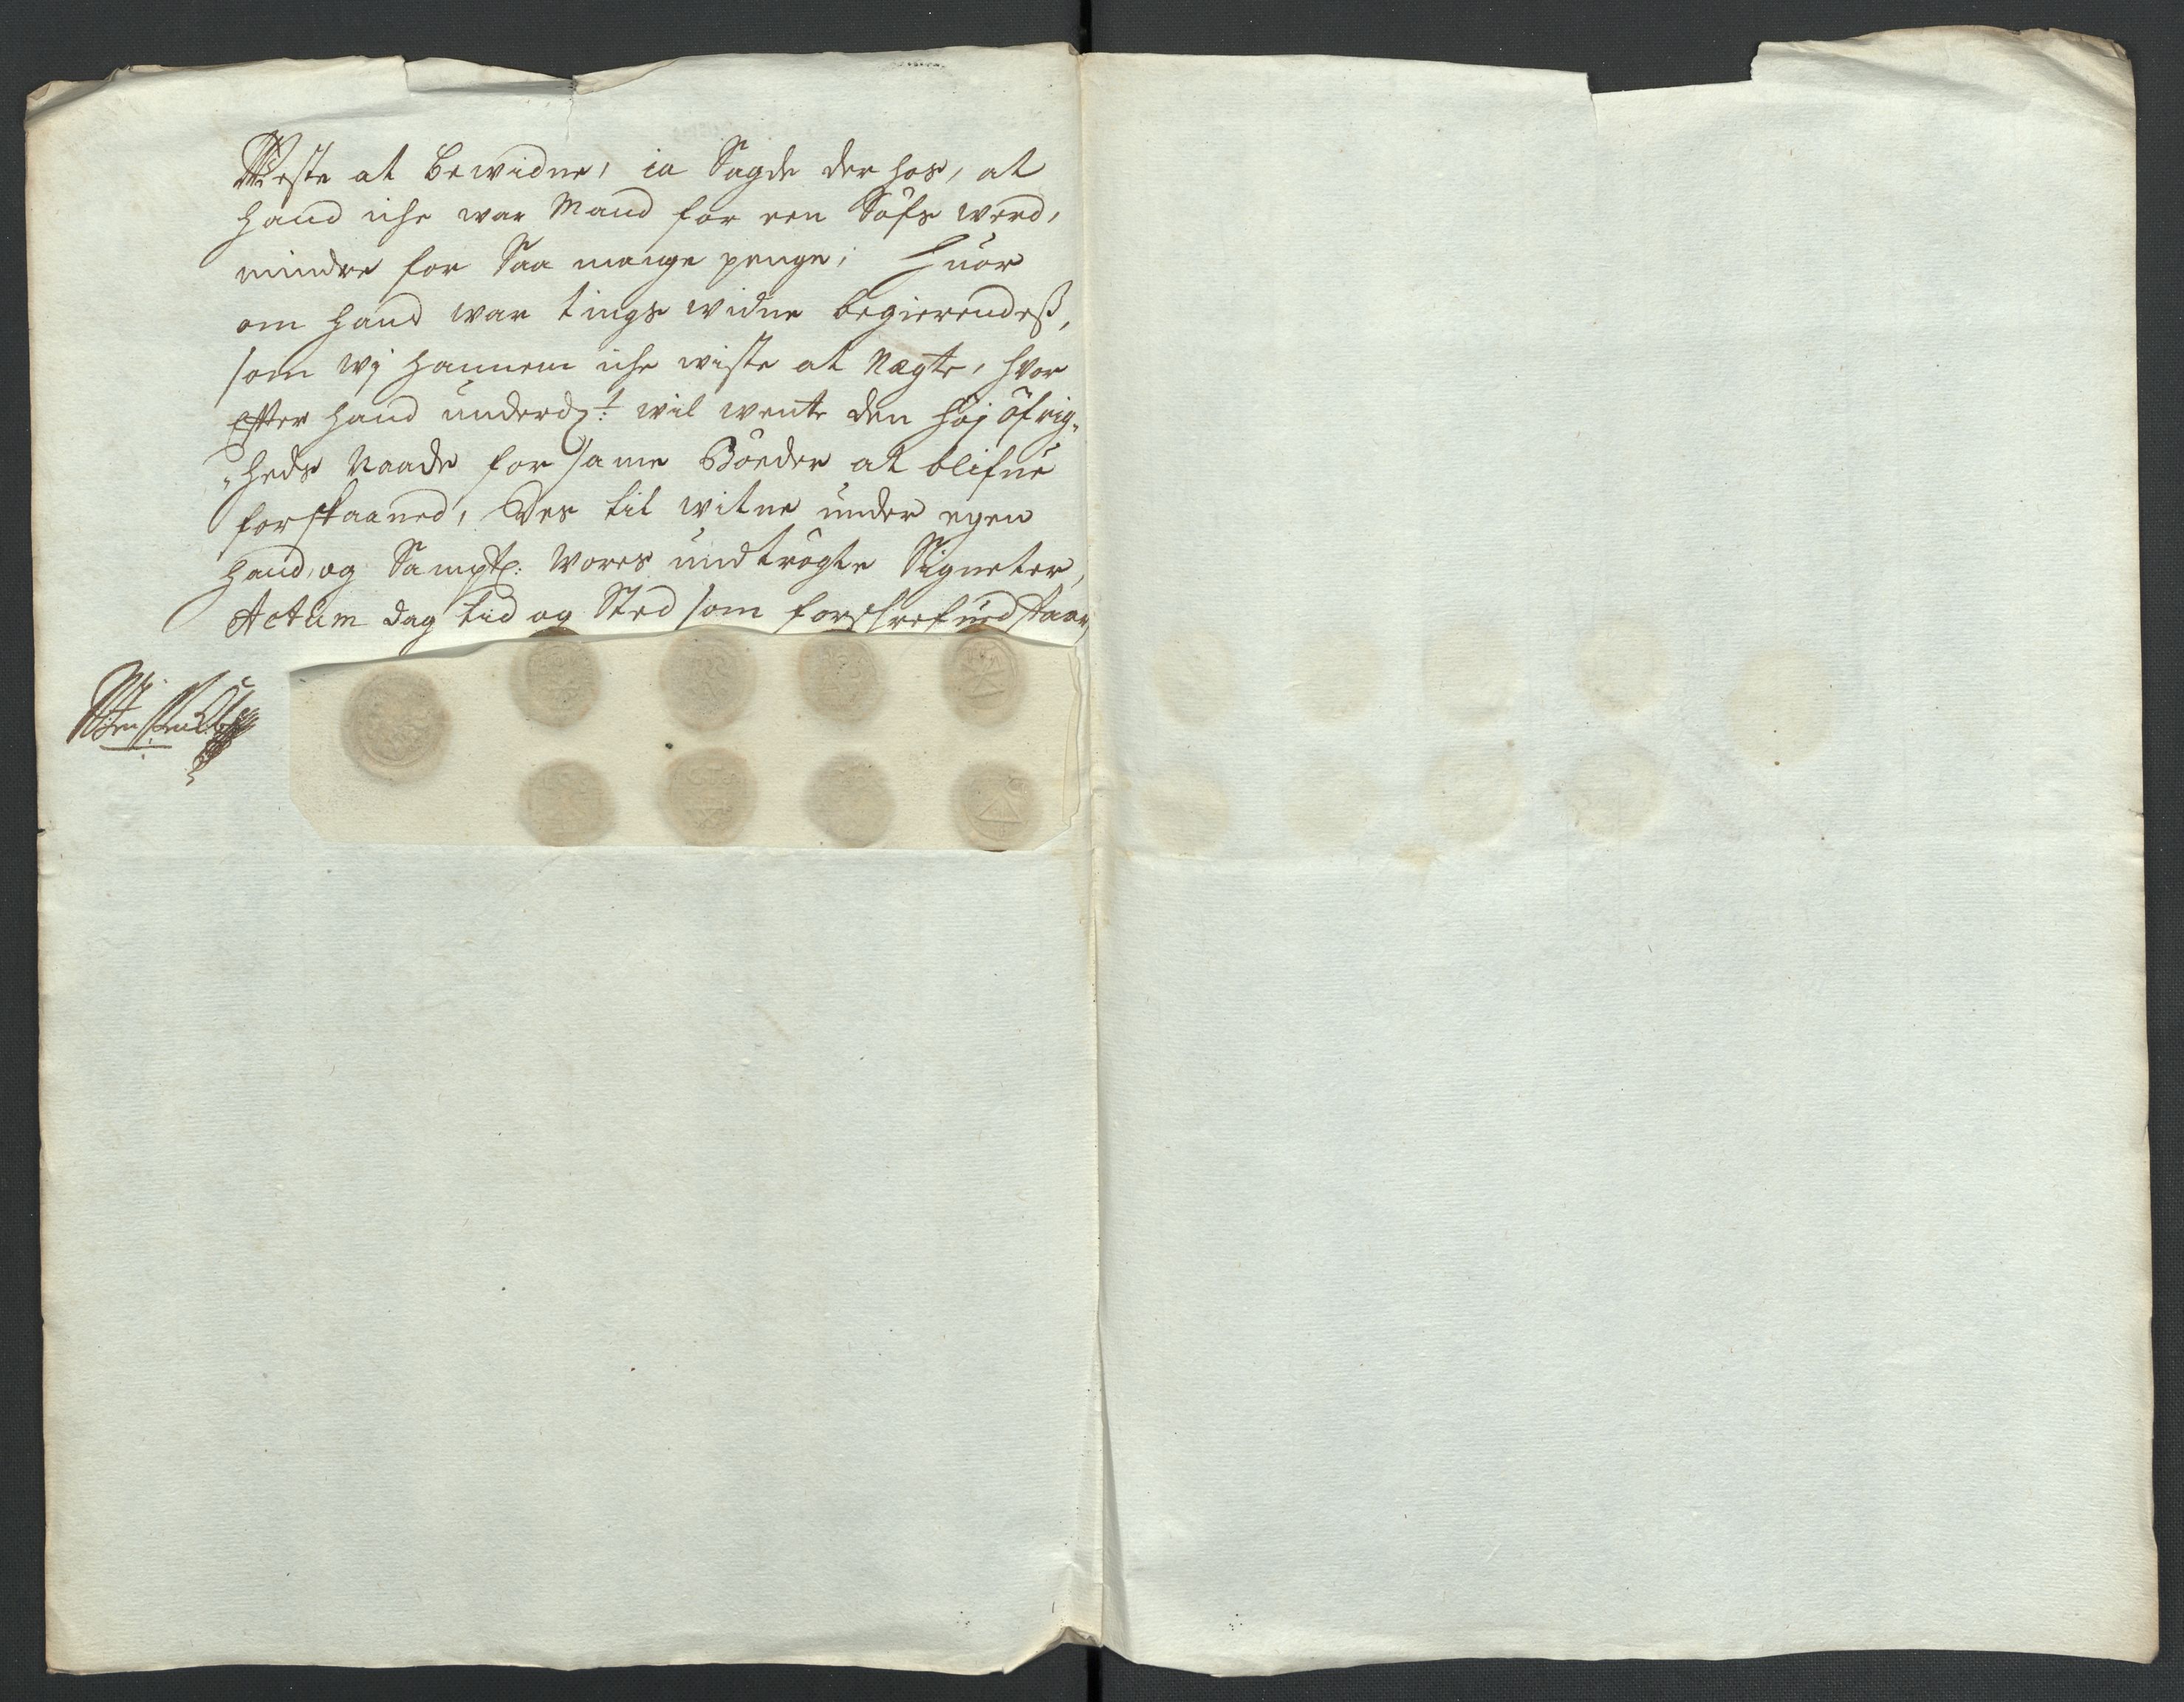 Weste at bewidne, ia Sagde der hos, at
hand iche war Mand for een Söfs werd,
mindre for Saa mange penge; Huor
om hand war tings widne begierendeß,
som wj hannem iche wiste at Nægte, hvor
efter hand underd:t wil wente den høj öfrig„
„heds Naade for same Böeder at blifue
forskaaned, Des til witne under egen
haand, og Sampt: Wores undtrögte Signeter,
Actum dag tid og Sted som forschrefued staar